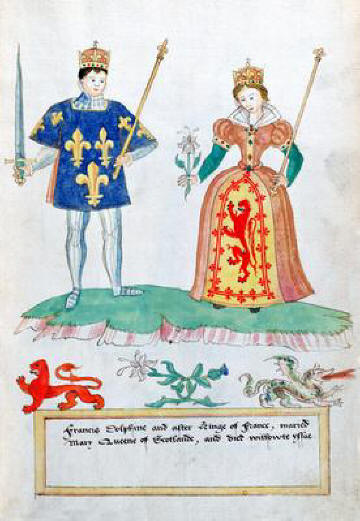 Francis Dolphine and after Kinge of France, maried
Mary Queene of Scotlande, and died withowte yssue